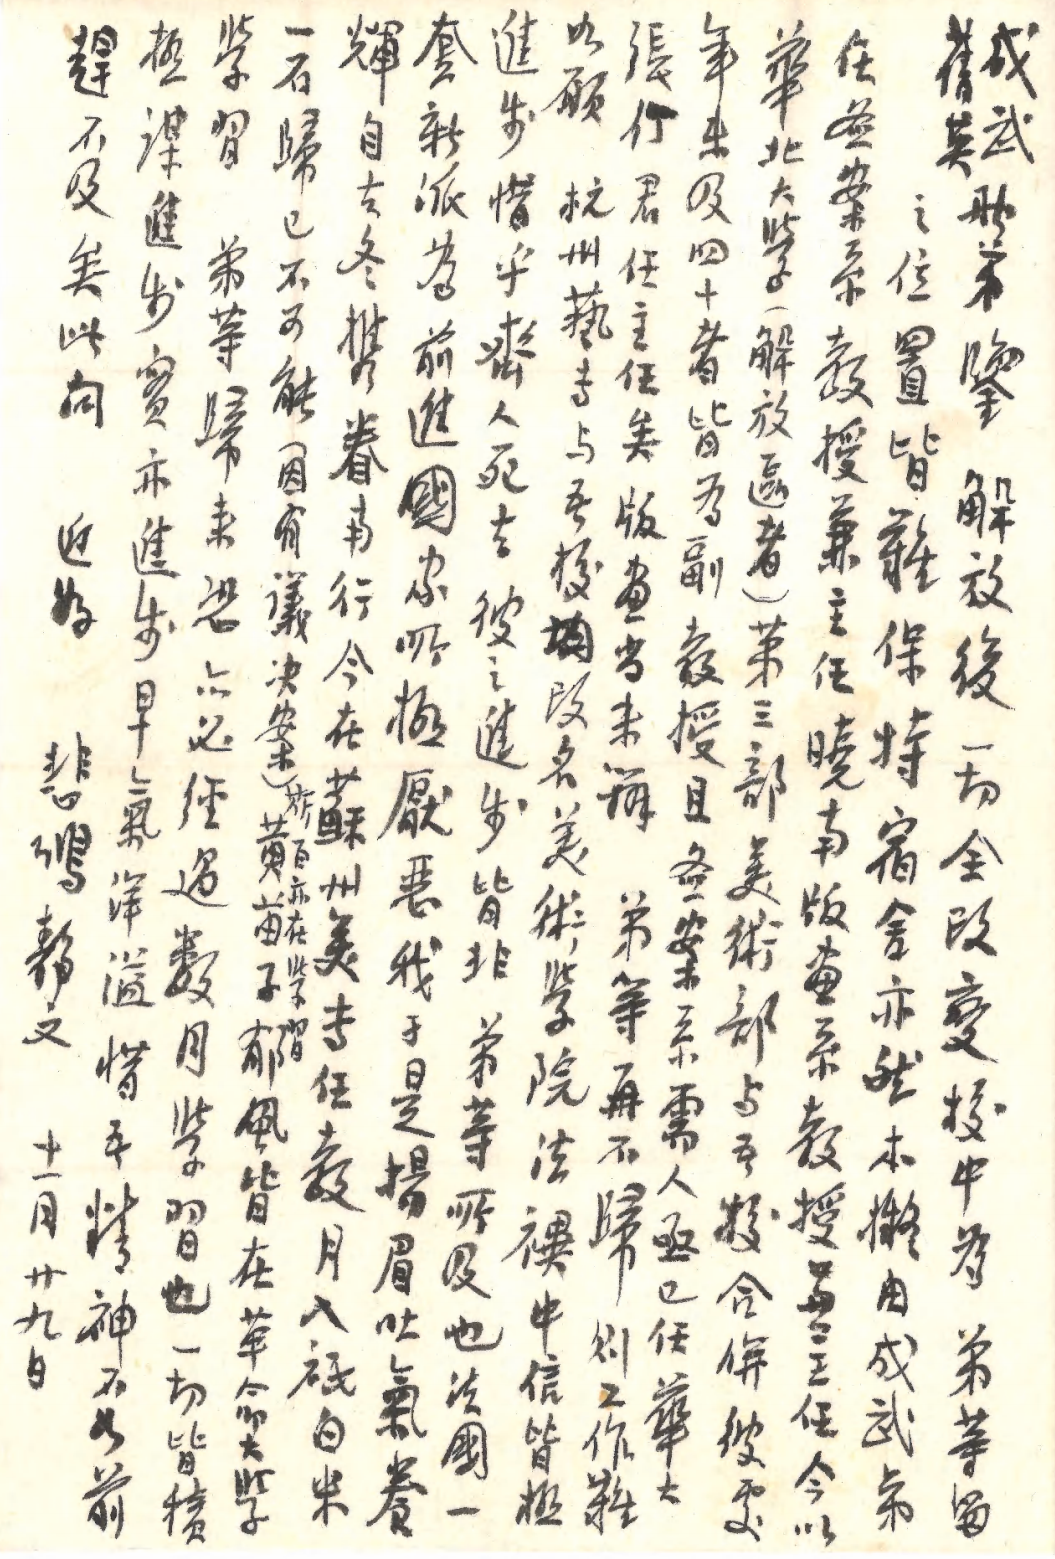 成武
蒨英 賢弟鑒 解放後一切全改變校中為 弟等留
之位置皆難保持宿舍亦然本擬由成武弟
任圖案系教授兼主任曉南版畫系教授兼主任今以
華北大學（解放區者）第三部美術部与吾校合併彼處
年未及四十者皆為副教授且圖案系需人亟已任華大
張仃君任主任矣版畫尚未辦 弟等再不歸則工作難
如願 杭州藝專与吾校均改名美術學院法禩中信皆極
進步惜乎齊人死去彼之進步皆非 弟等所及也法國一
套新派為前進國家所極厭惡我于是揚眉吐氣養
輝自去冬攜眷南行今在蘇州美專任教月入祇白米
一石歸已不可能因有議決案 黃苗子郁風皆在革命大學
祚百亦在學習
學習 弟等歸來恐亦必經過數月學習也一切皆積
極謀進步實亦進步早氣洋溢惜吾精神不如前
趕不及矣此問 近好 悲鴻靜文 十一月廿九日